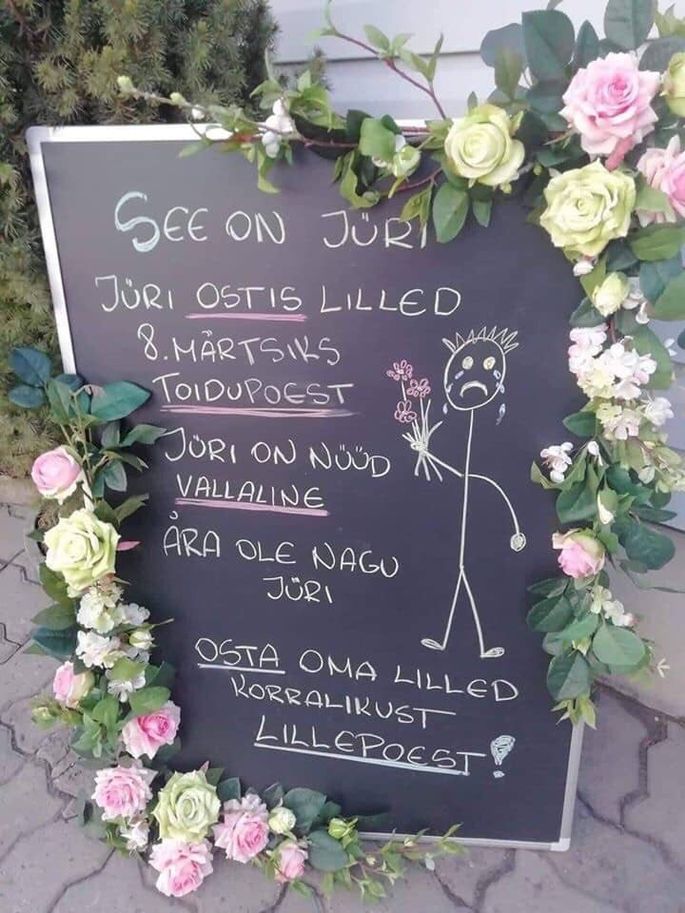 SEE ON JÜRI
JÜRI OSTIS LILLED
8. MÄRTSIKS
TOIDUPOEST
JÜRI ON NÜÜD
VALLALINE
ÄRA OLE NAGU
JÜRI
OSTA OMA LILLED
KORRALIKUST
LILLEPOEST!